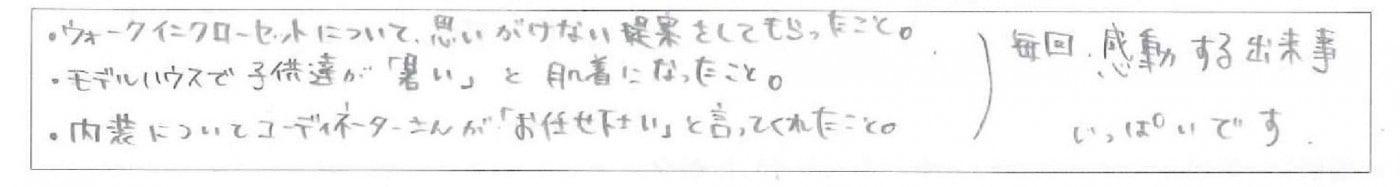 ・ウォークインクローゼットについて、思いがけない提案をしてもらったこと。
・モデルハウスで子供達が「暑い」と肌着になったこと。
・内装についてコーディネーターさんが「お任せ下さい」と言ってくれたこと。
毎回、感動する出来事
いっぱいです.